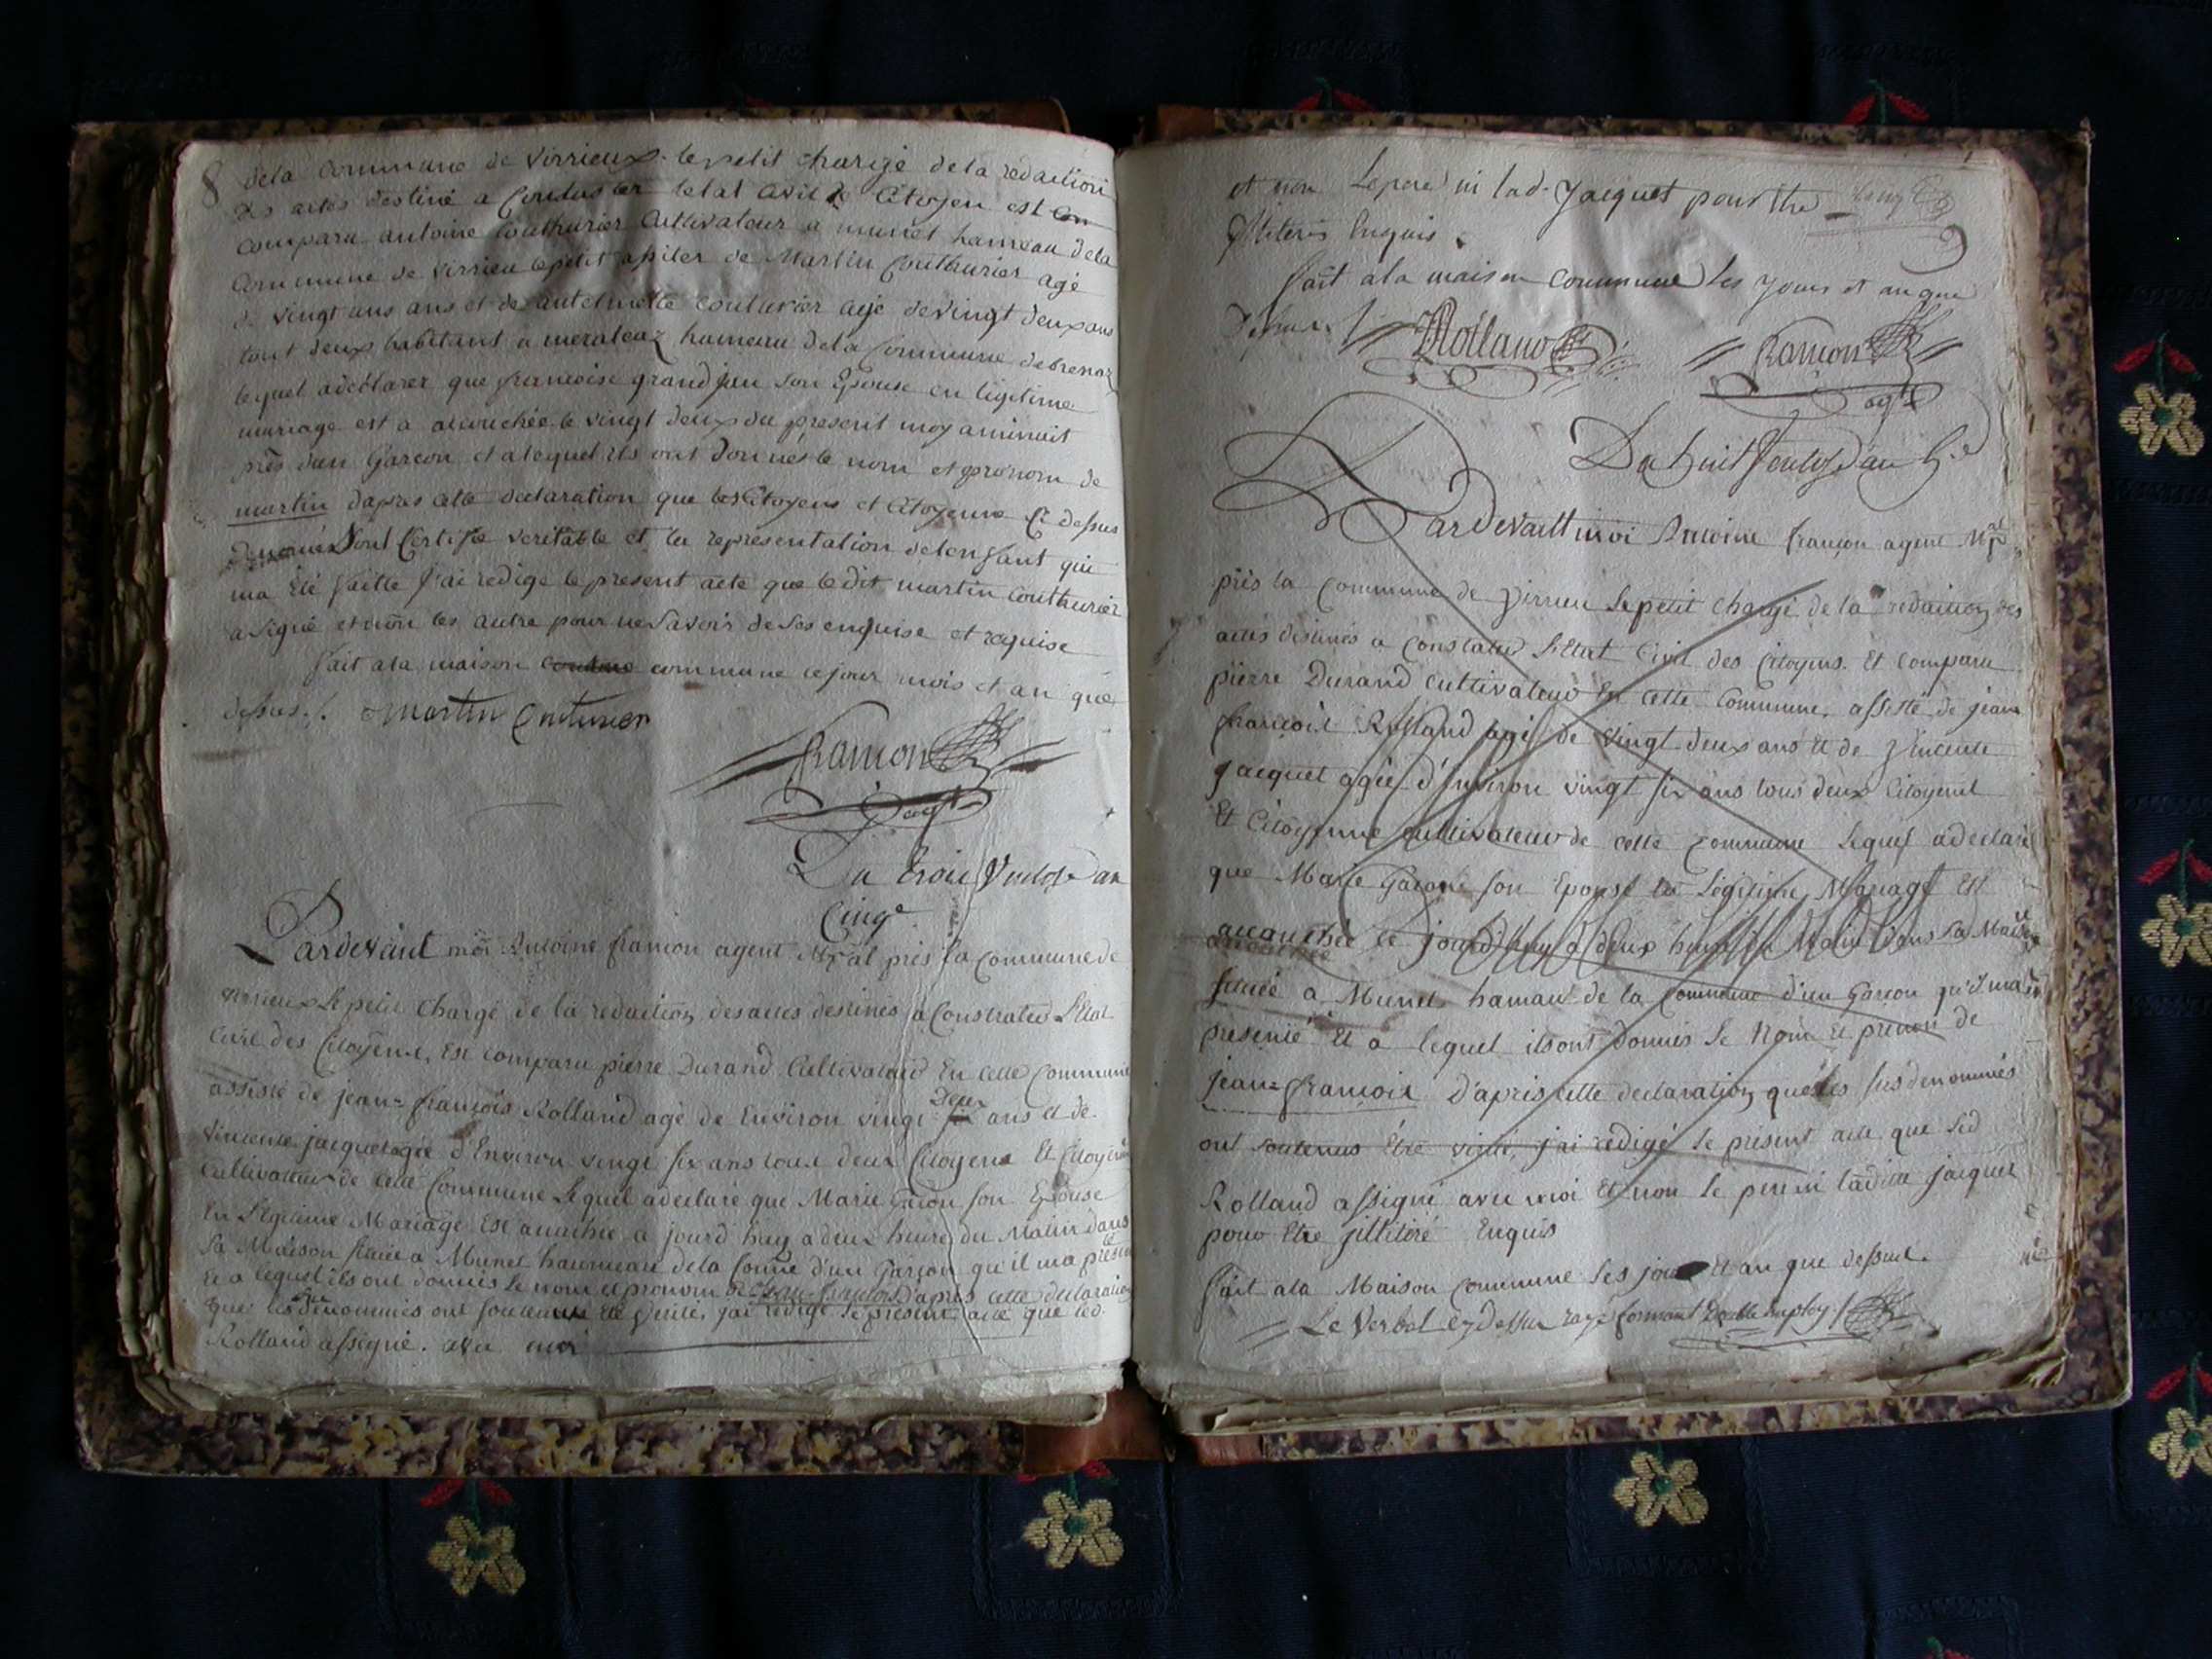 8
de la Commune de Virrieux. le petit chargé de la redaction
des actes destiné a Constater letat Civil Citoyen est
comparu antoine Couthurier Cultivateur a munet hameau de la
Commune de Virrieu le petit assiter de Martin Couthurier agé
de vingt uns ans et de antelmette couturier agé de vingt deux ans
tout deux habitant a meraleaz hameau de la Commune de brenaz
lequel a déclarer que francoise grandjan son Epouse en légitime
mariage est a accouchée le vingt deux du present moy a minuit
près d'un Garcon et a lequel ils ont donnés le nom et pronom de
martin dapres cette declaration que les Citoyens et Citoyenne Ci dessus
dénomés ont Certifié veritable et la representation de lenfant qui
ma été faitte J'ai redigé le present acte que le dit martin Couthurier
a signé et non les autre pour ne savoir de ses enquise et requise
fait a la maison commune ce jour mois et an que
dessus ./. martin Couturier
francon
agt
Du trois Ventose an
Cinqe
Pardevant moi Antoine francon agent Mpal près la commune de
Virrieux Le petit Chargé de la redaction des actes destinés a Constater L'Etat
Civil des Citoyens, Est comparu pierre Durand Cultivateur En cette Commune
assisté de jean=françois Rolland agé de Environ vingt deux ans et de
vincente jacquet agée d'Environ vingt six ans tous deux Citoyens Et Citoyenne
Cultivateur de cette Commune Lequel a declaré que Marie Gacon son Epouse
En Légitime Mariage Est accouchée a jourd'huy a deux heures du Matin dans
Sa Maison située a Munet haumeau de la Comne d'un Garçon qu'il ma présenté
Et a lequel ils ont donnés le nom et pronom de jean-françois D'après cette declaration
que les susdenommés ont soutenus être verité, jai redigé le présent acte que led.
Rolland a ssigné. avec moi
et non Le pere ni lad. Jacquet pour Etre
jlliterés Enquis.
fait a la maison commune les jours et an que
dessus ./. Rolland francon
agt
Du huit Ventose an 5e
Pardevant moi Antoine françon agent Mpal
près la Commune de Virrieu Le petit Chargé de la redaction des
actes destinés a Constater L'Etat Civil des Citoyens. Et comparu
pierre Durand cultivateur En cette Commune, assisté de jean
françois Rolland agé de vingt deux ans et de vincente
jacquet agée d'Environ vingt six ans tous deux Citoyens
Et Citoyenne cultivateur de cette commune Lequel a declaré
que Marie Gacon son Epouse En Légitime Mariage Est
accouchée ce jourd'huy a deux heures du Matin dans sa Maison
située a Munet hamau de la Commune d'un Garçon qu'il ma
presenté Et a lequel ils ont donnés le Nom et prenon de
jean=françois D'après cette declaration que les susdenommés
ont soutenus être vérité, j'ai redigé le présent acte que led
Rolland a ssigné avec moi Et non le pere ni ladite jacquet
pour Etre jllitéré Enquis
fait a la Maison commune les jour Et an que dessus.
Le Verbal cy dessus rayé formant Double Employ ./.